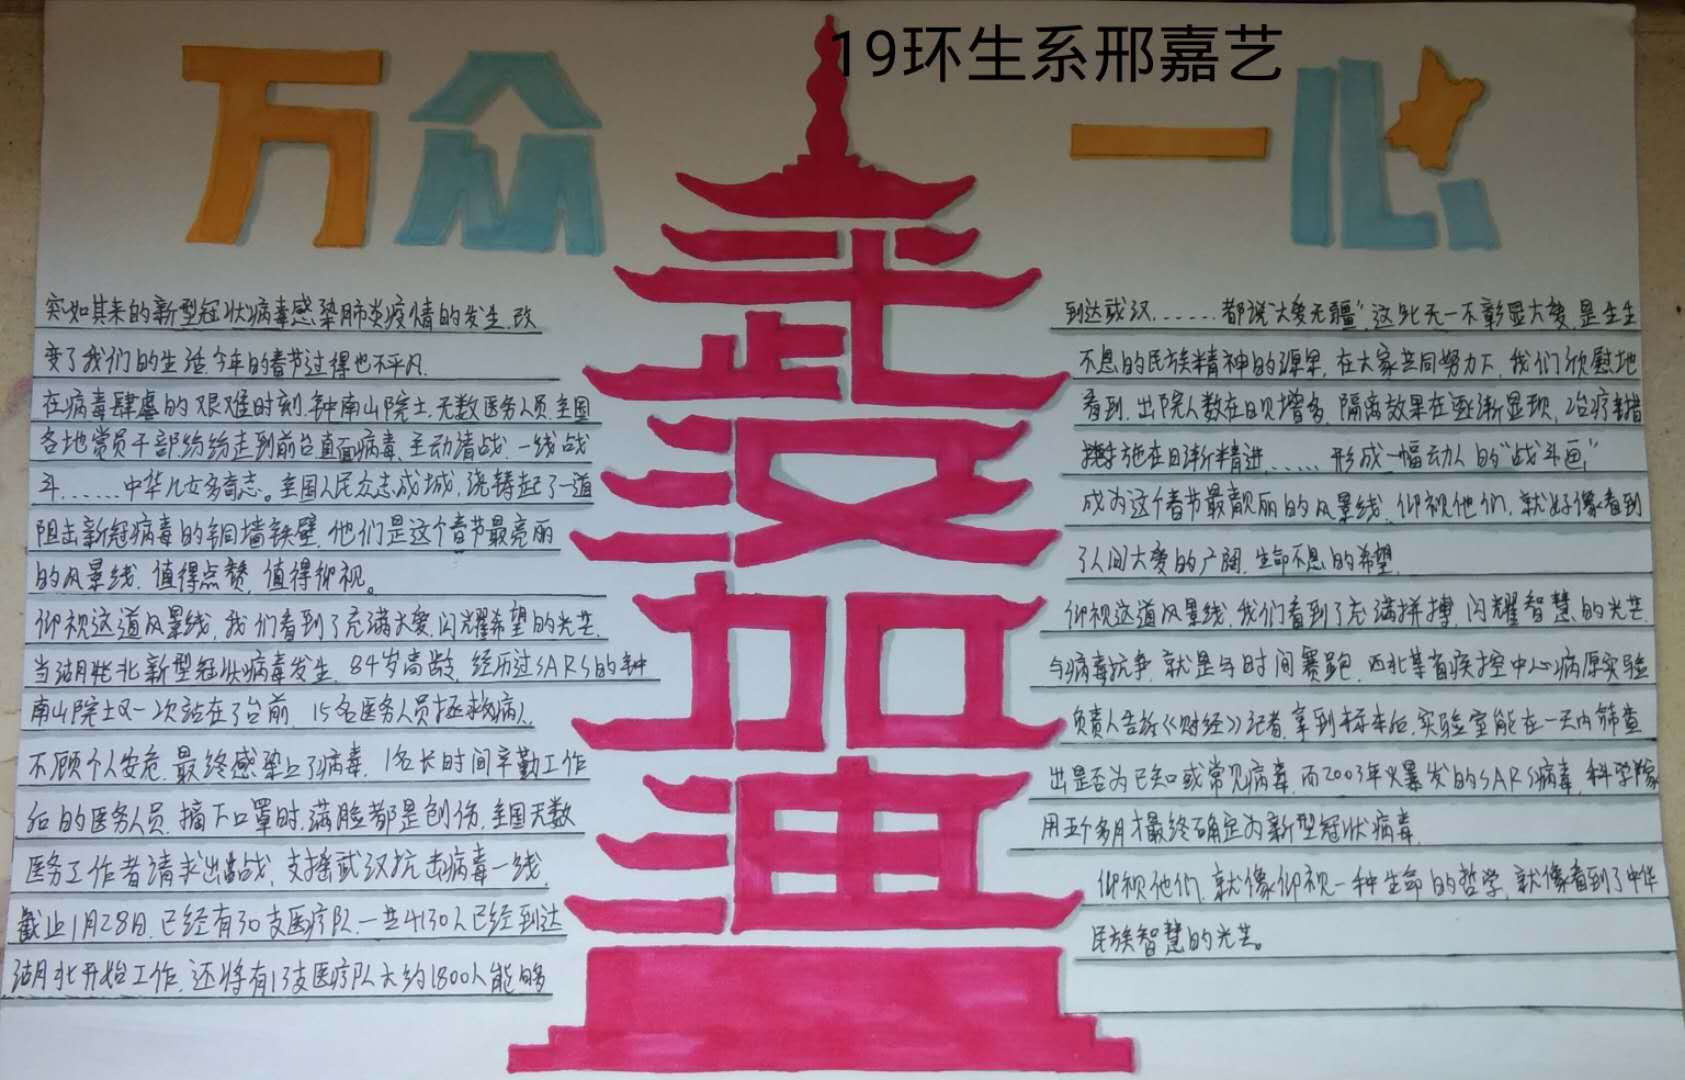 19环生系邢嘉艺
万众一心
武汉加油
突如其来的新型冠状病毒感染肺炎疫情的发生,改
变了我们的生活,今年的春节过得也不平凡.
在病毒肆虐的艰难时刻,钟南山院士,无数医务人员,全国
各地党员干部,纷纷走到前台直面病毒,主动请战,一线战
斗......中华儿女多奇志。全国人民众志成城,浇铸起了一道
阻击新冠病毒的铜墙铁壁,他们是这个春节最亮丽
的风景线,值得点赞,值得仰视。
仰视这道风景线,我们看到了充满大爱,闪耀希望的光芒.
当湖北新型冠状病毒发生,84岁高龄,经历过SARS的钟
南山院士又一次站在了台前,15名医务人员拯救病人,
不顾个人安危,最终感染上了病毒,1名长时间辛勤工作
后的医务人员,摘下口罩时,满脸都是创伤,全国无数
医务工作者请求出战,支援武汉抗击病毒一线,
截止1月28日,已经有30支医疗队,一共4130人已经到达
湖北开始工作,还将有13支医疗队大约1800人能够
到达武汉......都说"大爱无疆",这些无一不彰显大爱,是生生
不息的民族精神的源泉,在大家共同努力下,我们欣慰地
看到,出院人数在日见增多,隔离效果在逐渐显现,治疗措
施在日渐精进......形成一幅动人的"战斗画",
成为这个春节最靓丽的风景线,仰视他们,就好像看到
了人间大爱的广阔,生命不息的希望.
仰视这道风景线,我们看到了充满拼搏,闪耀智慧的光芒.
与病毒抗争,就是与时间赛跑,西北某省疾控中心病原实验
负责人告诉《财经》记者,拿到标本后,实验室能在一天内筛查
出是否为已知或常见病毒,而2003年火暴发的SARS病毒,科学家
用五个多月才最终确定为新型冠状病毒.
仰视他们,就像仰视一种生命的哲学,就像看到了中华
民族智慧的光芒。